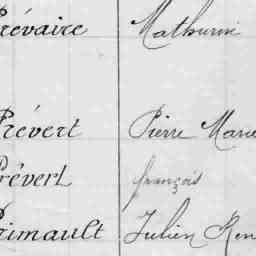 Prévaire Mathurin
Prévert Pierre Marie
Prévert françois
Primault Julien Ren